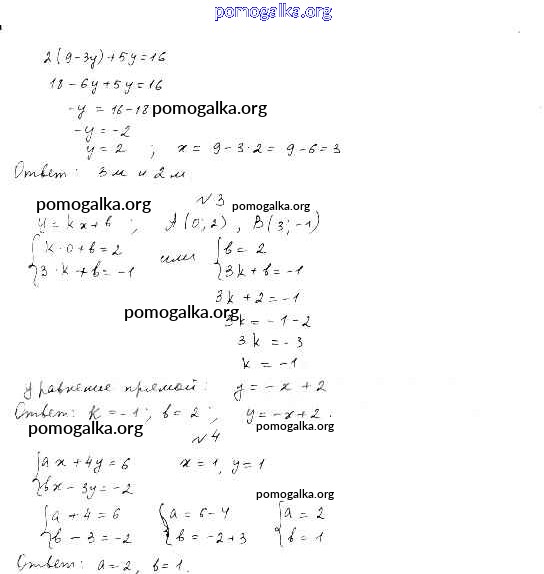 pomogalka.org
2(9-3y)+5y=16
18-6y+5y=16
-y = 16-18 pomogalka.org
-y = -2
y = 2 ; x = 9-3·2 = 9-6=3
Ответ: 3 м и 2 м
pomogalka.org №3 pomogalka.org
y = kx+b ; A(0;2), B(3;-1)
{k·0+b=2 или {b=2
{3·k+b=-1 {3k+b=-1
3k+2=-1
pomogalka.org 3k=-1-2
3k=-3
k=-1
Уравнение прямой: y=-x+2
Ответ: k=-1; b=2; y=-x+2.
pomogalka.org №4 pomogalka.org
{ax+4y=6 x=1, y=1
{bx-3y=-2
pomogalka.org
{a+4=6 {a=6-4 {a=2
{b-3=-2 {b=-2+3 {b=1
Ответ: a=2, b=1.
pomogalka.org